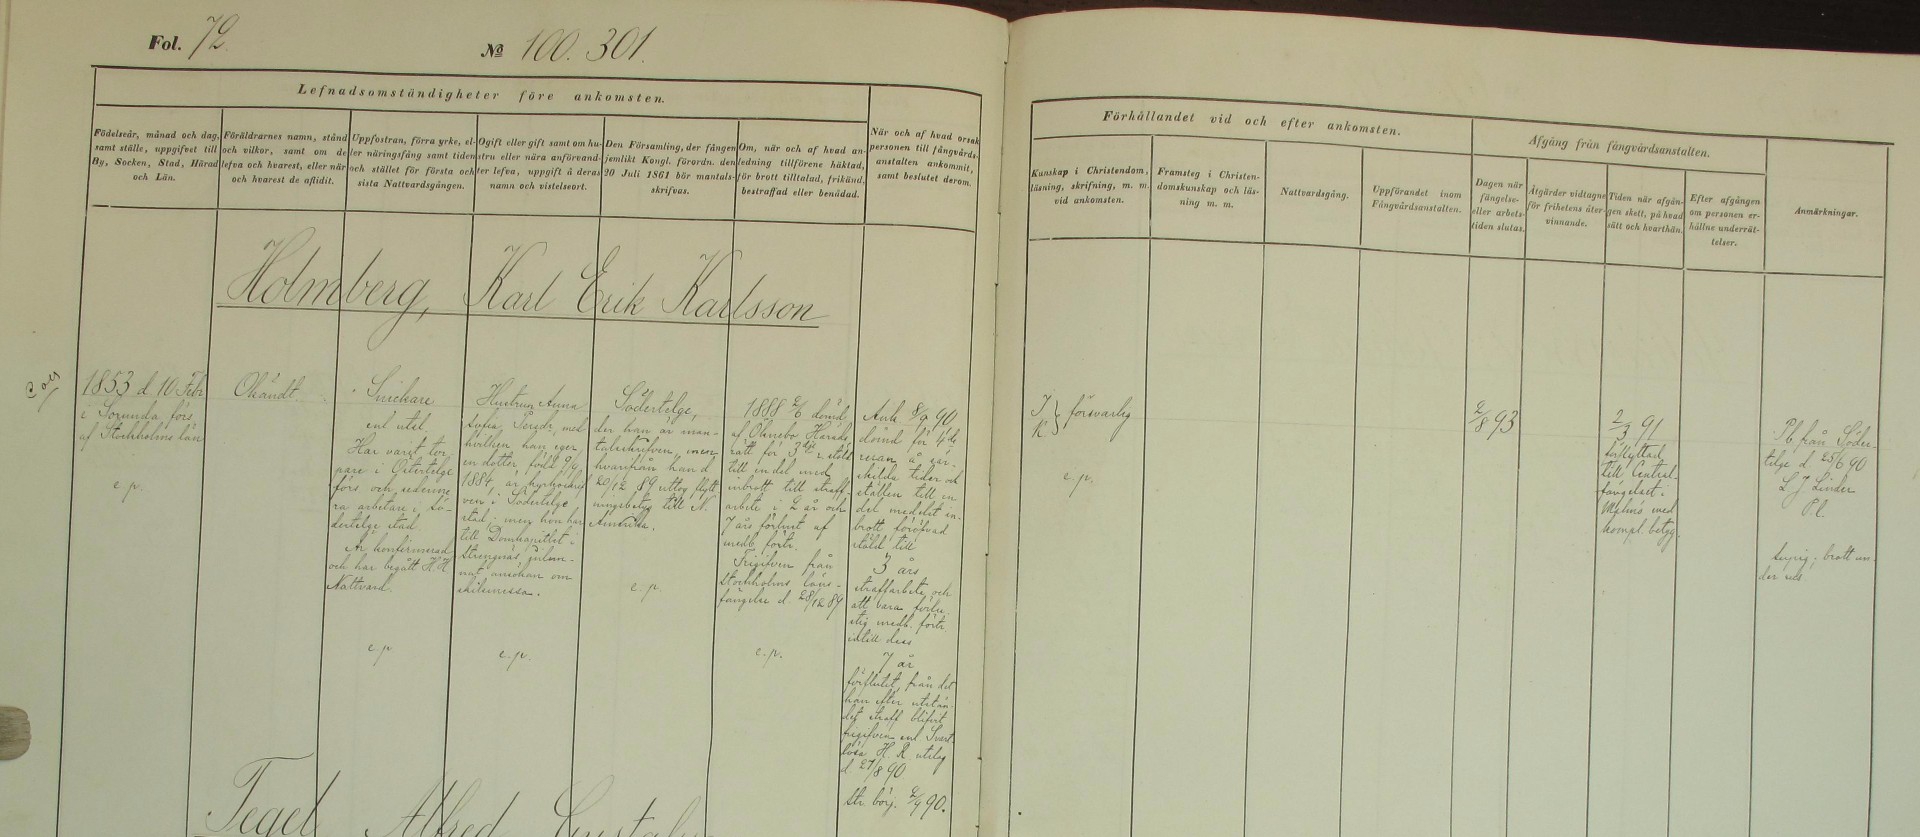 Fol. 72.
No 100. 301.
Lefnadsomständigheter före ankomsten.
Födelseår, månad och dag,
samt ställe, uppgifvet till
By, Socken, Stad, Härad
och Län.
Föräldrarnes namn, stånd
och vilkor, samt om de
lefva och hvarest, eller när
och hvarest de aflidit.
Uppfostran, förra yrke, el-
ler näringsfång samt tiden
och stället för första och
sista Nattvardsgången.
Ogift eller gift samt om hu-
stru eller nära anförvand-
ter lefva, uppgift å deras
namn och vistelseort.
Den Församling, der fången
jemlikt Kongl. förordn. den
20 Juli 1861 bör mantals-
skrifvas.
Om, när och af hvad an-
ledning tillförene häktad,
för brott tilltalad, frikänd,
bestraffad eller benådad.
När och af hvad orsak
personen till fångvårds-
anstalten ankommit,
samt beslutet derom.
Förhållandet vid och efter ankomsten.
Kunskap i Christendom,
läsning, skrifning, m. m.
vid ankomsten.
Framsteg i Christen-
domskunskap och läs-
ning m. m.
Nattvardsgång.
Uppförandet inom
Fångvårdsanstalten.
Afgång från fångvårdsanstalten.
Dagen när
fängelse-
eller arbets-
tiden slutas.
Åtgärder vidtagne
för frihetens åter-
vinnande.
Tiden när afgån-
gen skett, på hvad
sätt och hvarthän.
Efter afgången
om personen er-
hållne underrät-
telser.
Anmärkningar.
Holmberg, Karl Erik Karlsson
1853 d 10 Febr
i Sorunda förs
af Stockholms län
e. p.
Okändt.
Snickare
enl utsl.
Har varit tor
pare i Östertelge
förs och sederme
ra arbetare i Sö-
dertelge stad
Är konfirmerad
och har begått H. H.
Nattvard.
e. p
Hustrun Anna
Sofia Persdr, med
hvilken han eger
en dotter, född 9/9
1884, är kyrkoskrif
ven i Södertelge
stad; men hon har
till Domkapitlet i
Strengnäs inlem-
nat ansökan om
skilsmessa.
e. p.
Södertelge,
der han är man-
talsskrifven, men
hvarifrån han d
20/12 89 uttog flytt
ningsbetyg till N.
Amerika.
e. p.
1888 2/6 dömd
af Öknebo Härads
rätt för 3dje r. stöld
till en del med
inbrott till straff-
arbete i 2 år och
7 års förlust af
medb. förtr.
Frigifven från
Stockholms läns-
fängelse d. 28/12 89
e. p.
Ank. 8/9 90
dömd för 4de
resan å sär-
skilda tider och
ställen till en
del medelst in-
brott föröfvad
stöld till
3 års
straffarbete och
att vara förlu-
stig medb. förtr.
intill dess
7 år
förflutit från det
han efter utstån-
det straff blifvit
frigifven enl. Svart-
lösa H. R. utslag
d. 27/8 90
Str. börj. 2/9 90.
I
K } försvarlig
e. p.
2/8 93
2/3 91
förflyttad
till Central-
fängelset i
Malmö med
kompl. betyg.
Pb. från Söder-
telge d 25/6 90
L J Linder
P. l.
brott un-
der
Tegel, Alfred Gustaf